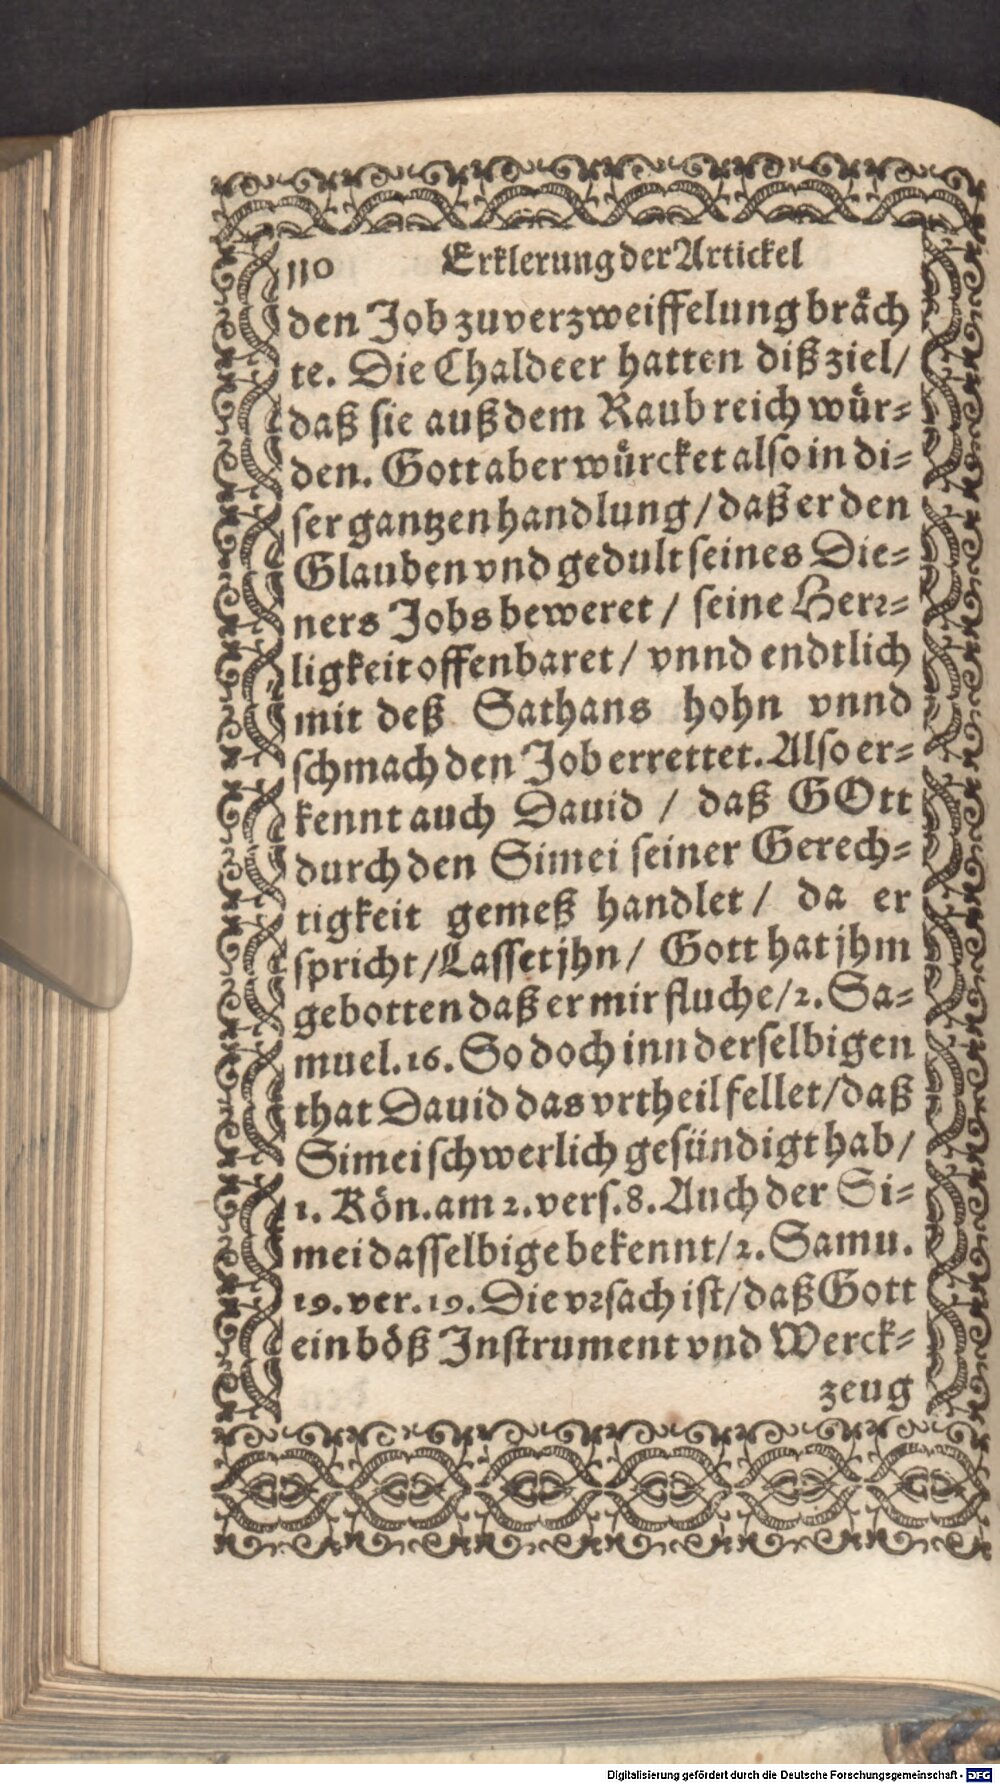 110 Erklerung der Artickel
den Job zu verzweiffelung bräch
te. Die Chaldeer hatten diß ziel/
daß sie auß dem Raub reich wür-
den. Gott aber würcket also in di-
ser gantzen handlung/ daß er den
Glauben vnd gedult seines Die-
ners Jobs beweret / seine Herr-
ligkeit offenbaret/ vnnd endtlich
mit deß Sathans hohn vnnd
schmach den Job errettet. Also er-
kennt auch Dauid / daß GOtt
durch den Simei seiner Gerech-
tigkeit gemeß handlet/ da er
spricht/ Lasset jhn/ Gott hat jhm
gebotten daß er mir fluche/ 2. Sa-
muel. 16. So doch inn derselbigen
that Dauid das vrtheil fellet/ daß
Simei schwerlich gesündigt hab/
1. Kön. am 2. vers. 8. Auch der Si-
mei dasselbige bekennt/ 2. Samu.
19. ver. 19. Die vrsach ist/ daß Gott
ein böß Instrument vnd Werck-
zeug
Digitalisierung gefördert durch die Deutsche Forschungsgemeinschaft - DFG